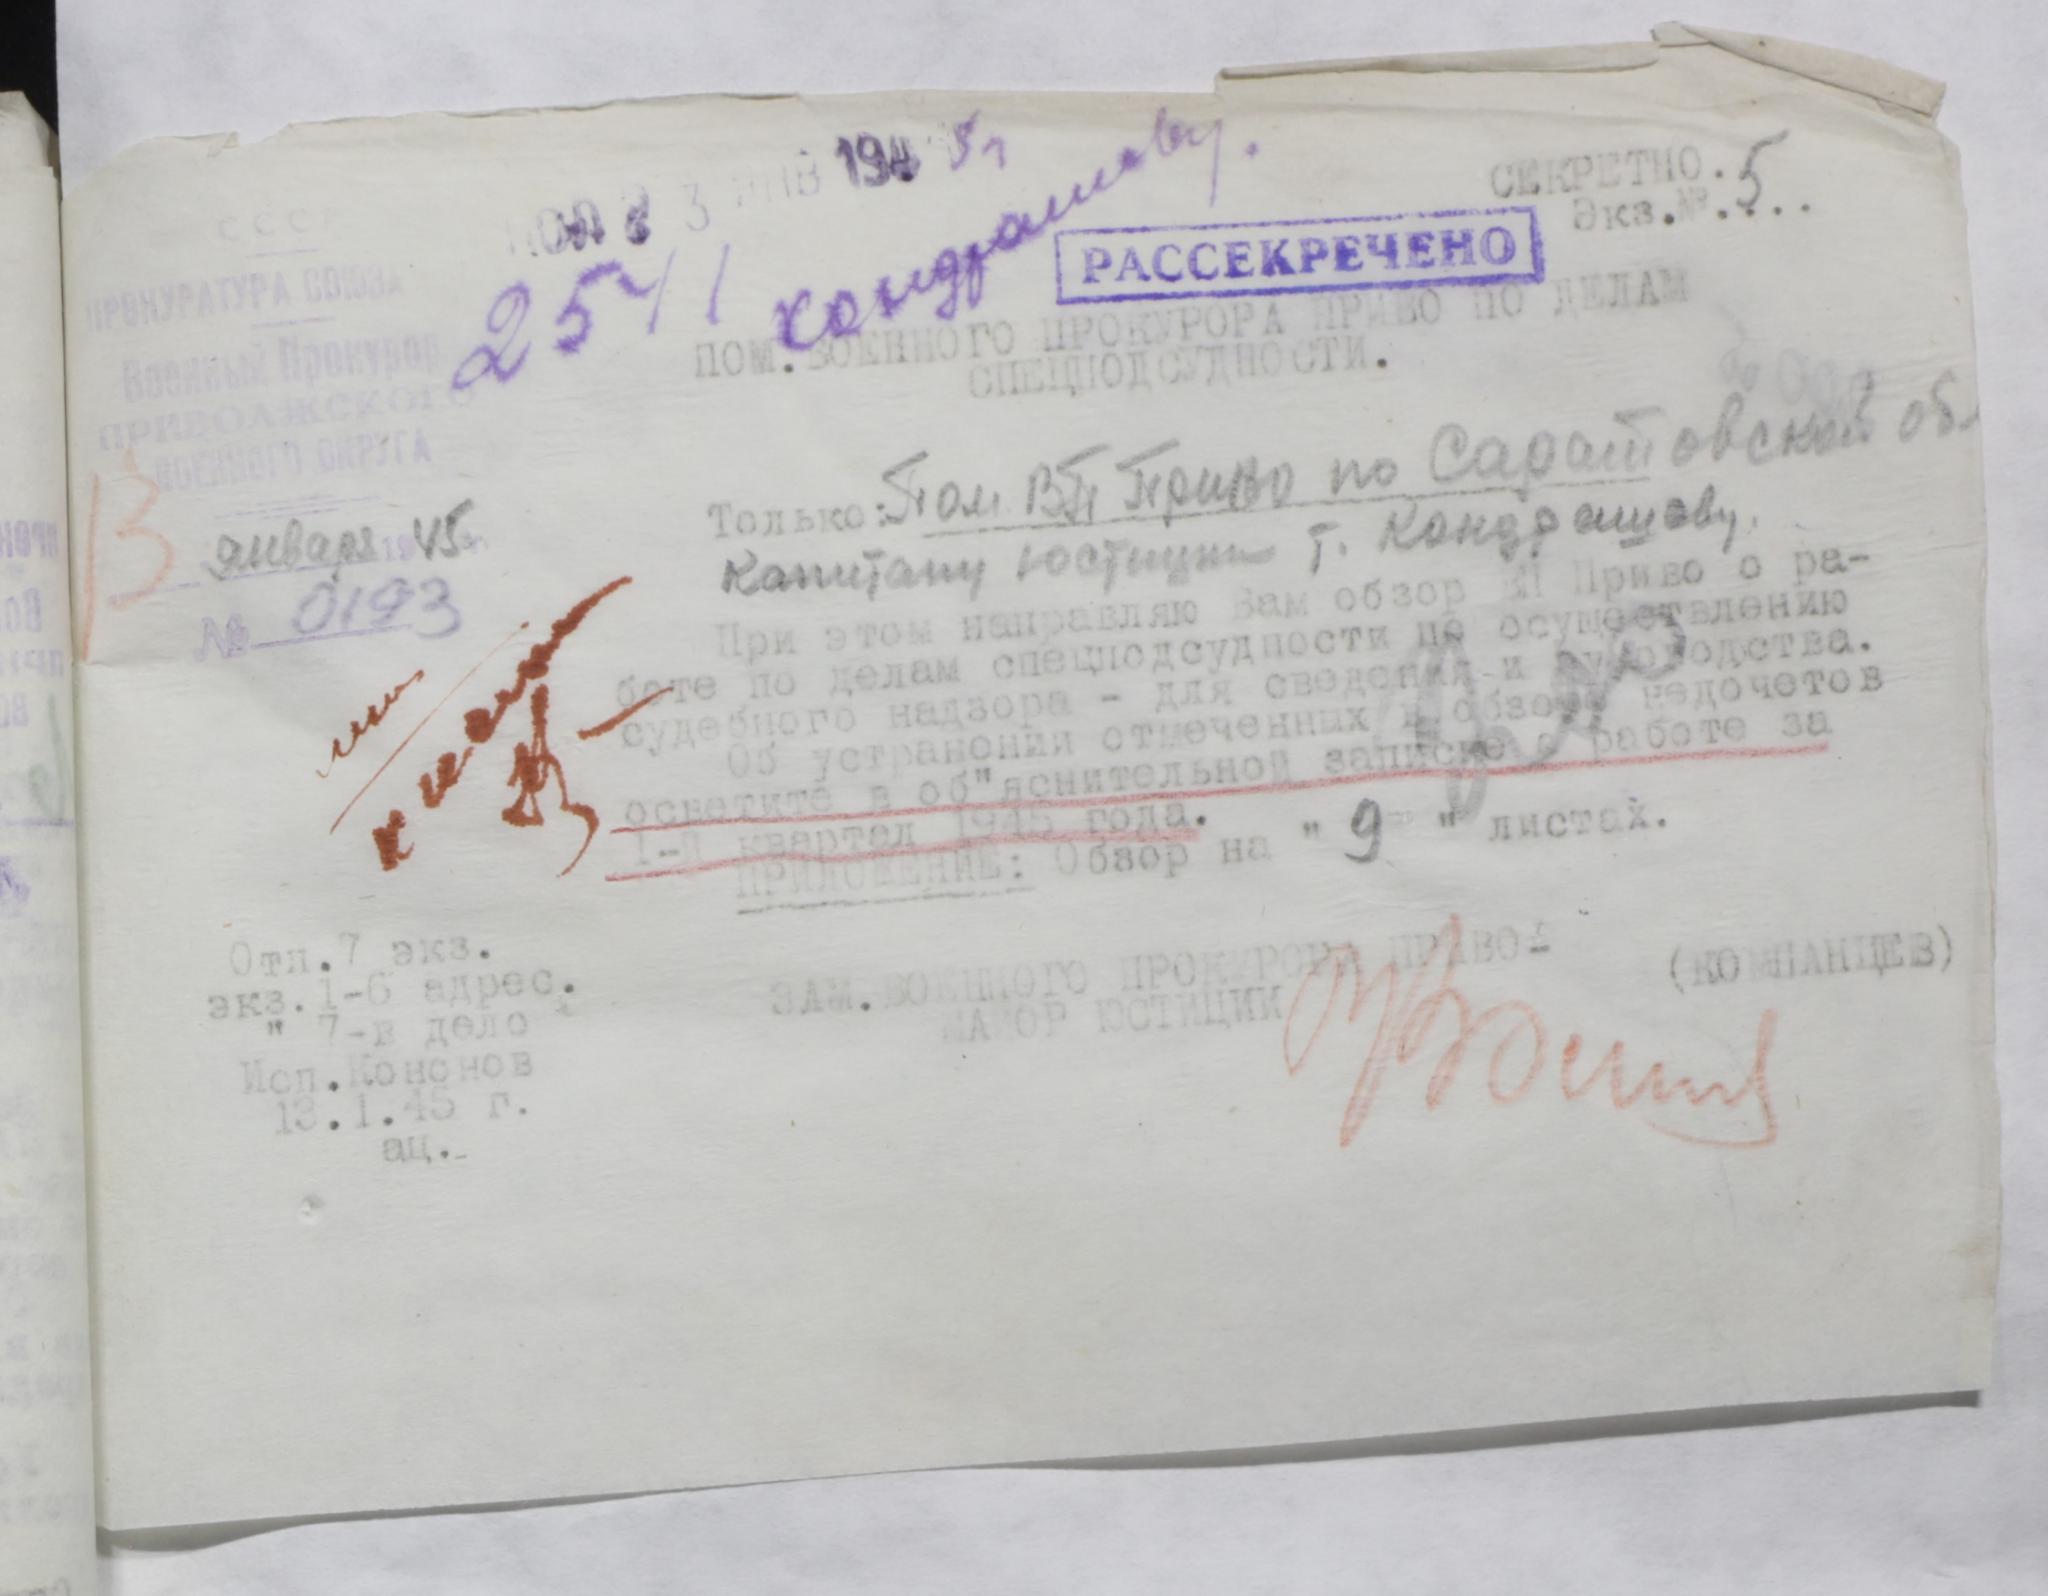 СССР
ПРОКУРАТУРА СОЮЗА
Военный Прокурор
ПРИВОЛЖСКОГО
ВОЕННОГО ОКРУГА
13 января 1945
№ 0193
3 ЯНВ 194 5г
Кондрашову.
СЕКРЕТНО.
Экз.№.5...
РАССЕКРЕЧЕНО
ПОМ.ВОЕННОГО ПРОКУРОРА ПРИВО ПО ДЕЛАМ
СПЕЦПОДСУДНОСТИ.
Только: Пом ВП Приво по Саратовской обл
Капитану юстиции т. Кондрашову.
При этом направляю Вам обзор ВП Приво о ра-
боте по делам спецподсудности по осуществлению
судебного надзора - для сведения и руководства.
Об устранении отмеченных в обзоре недочетов
осветите в об"яснительной записке о работе за
1-й квартал 1945 года.
ПРИЛОЖЕНИЕ: Обзор на " 9 " листах.
ЗАМ.ВОЕННОГО ПРОКУРОРА ПРИВО-
МАЙОР ЮСТИЦИИ
(КОМПАНЦЕВ)
Отп.7 экз.
экз.1-6 адрес.
" 7-в дело
Исп.Кононов
13.1.45 г.
ац.-